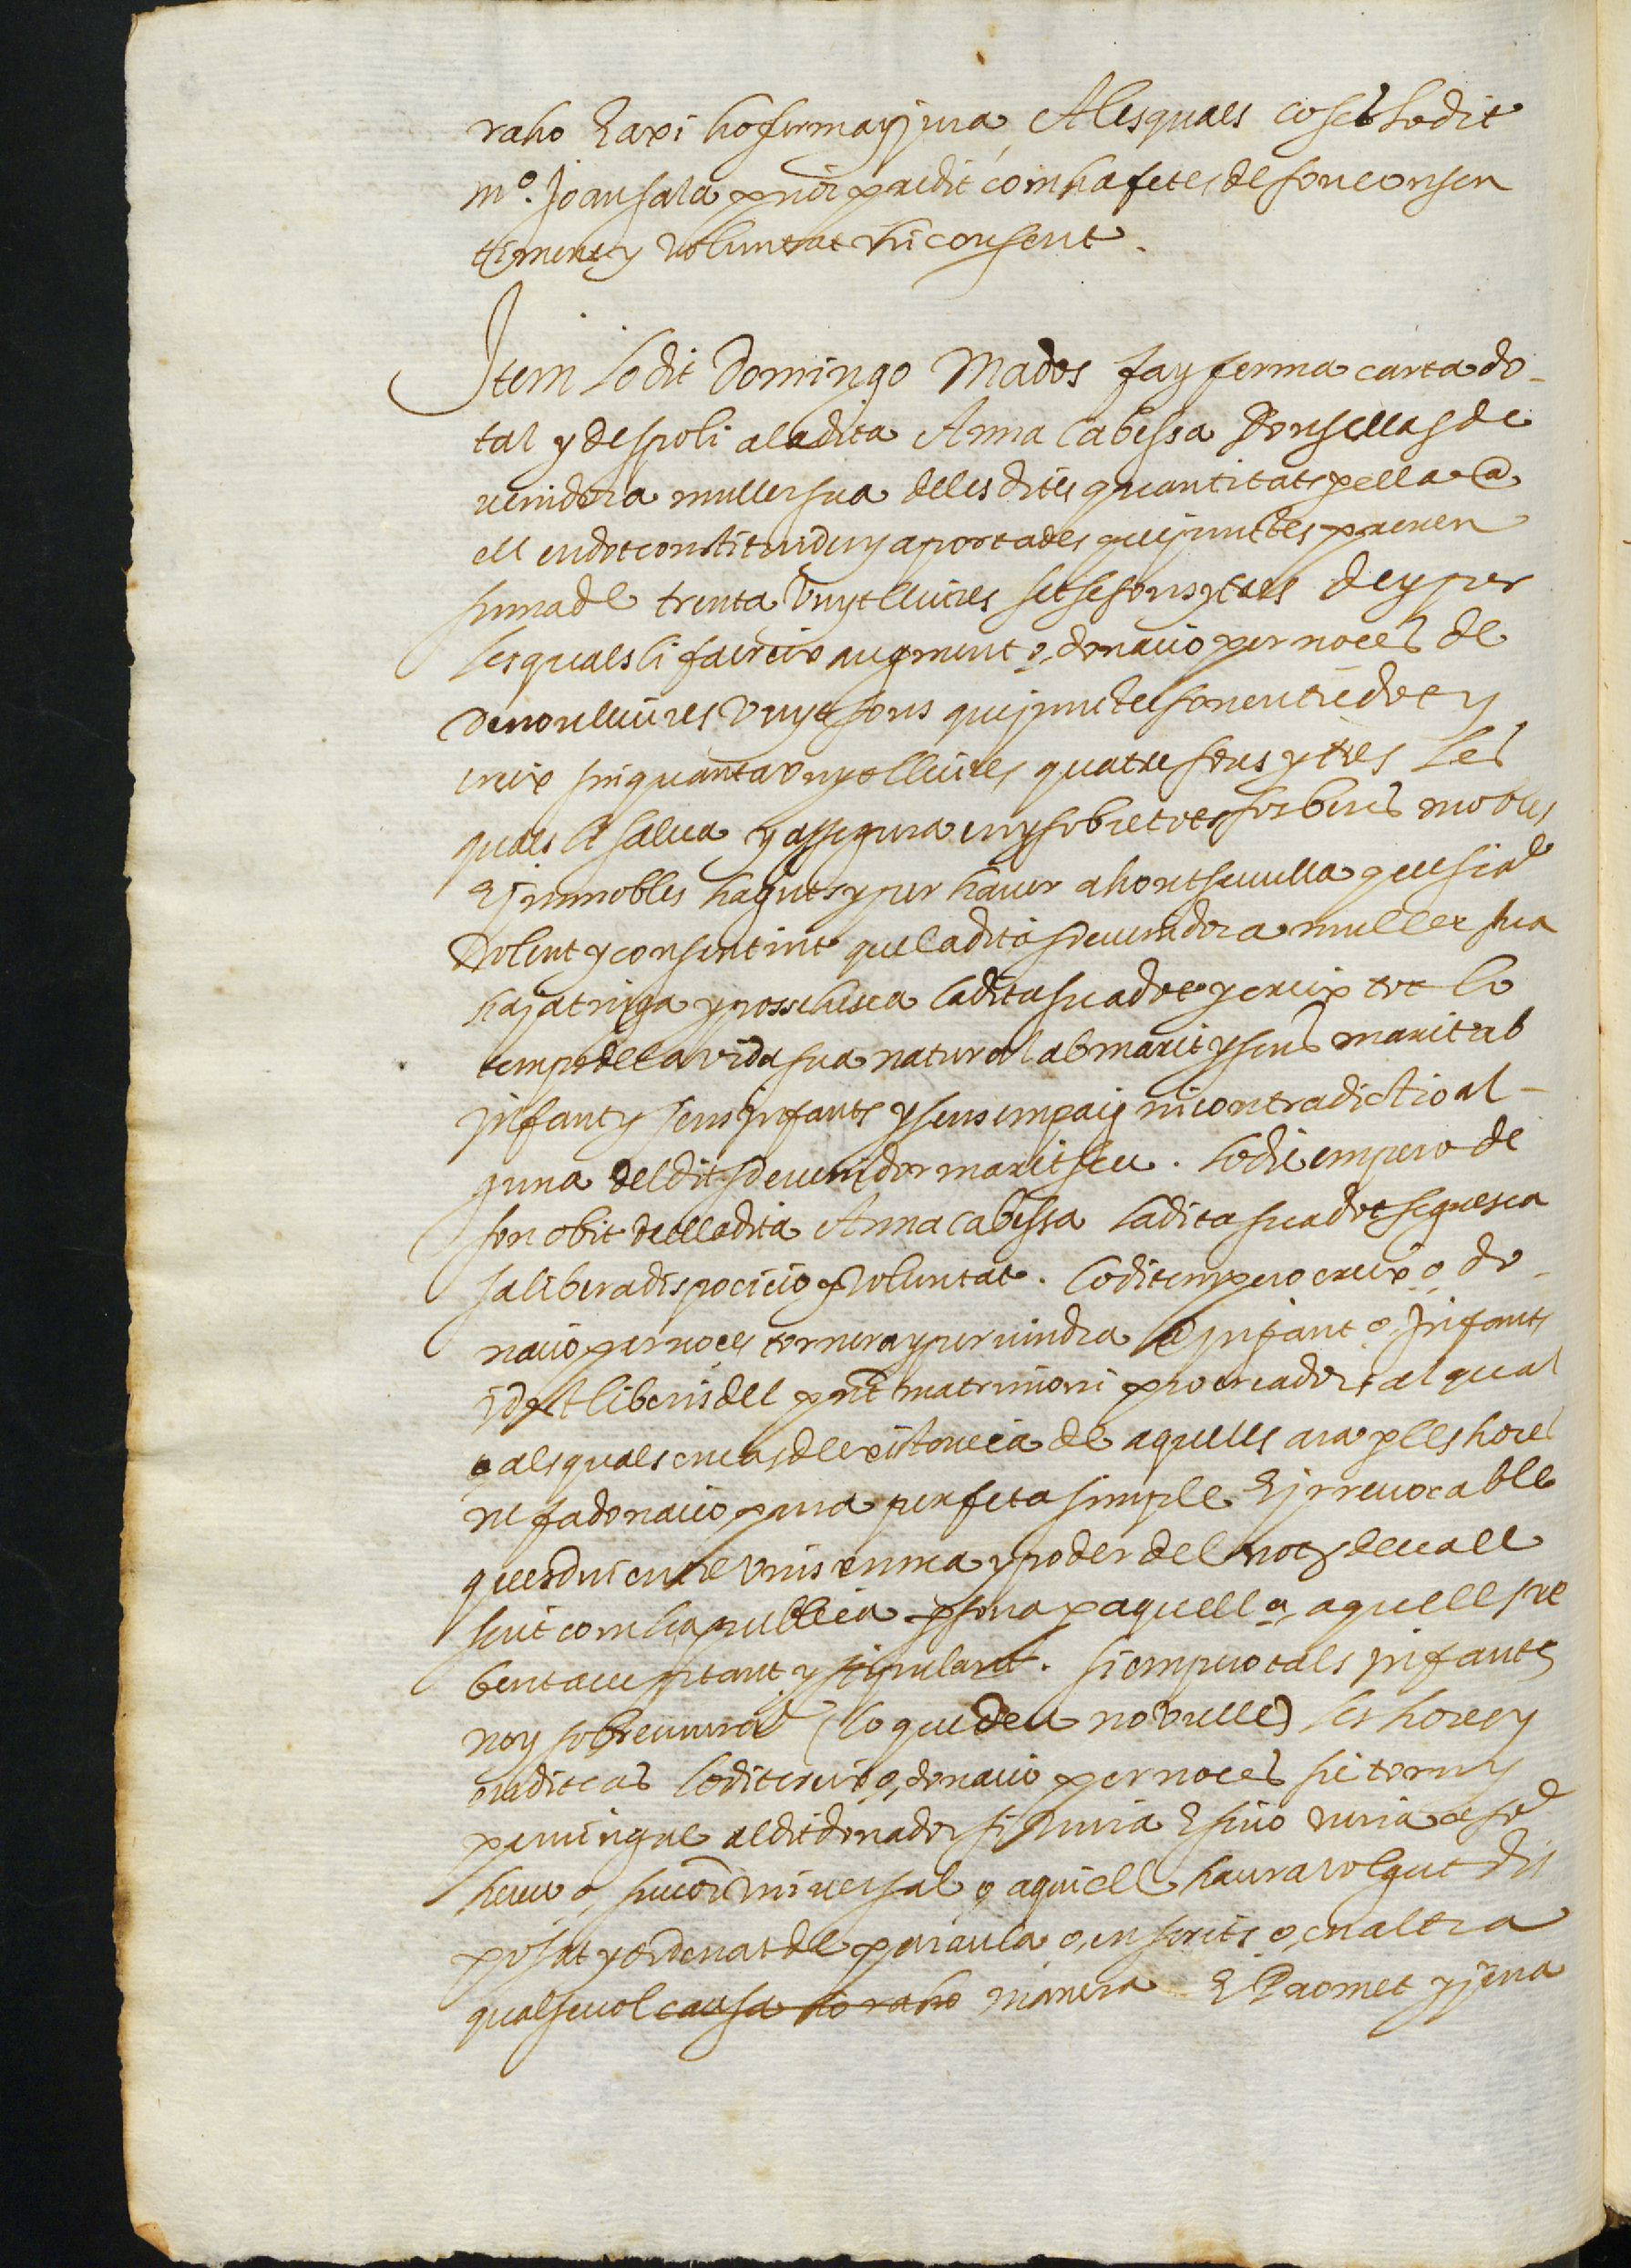 raho E axi ho ferma y jura A les quals coses lo dit
m.º Joan sala prior predit com ha fetes de son consen
timent y voluntat hi consent.
Item lo dit Domingo Mados fa y ferma carta do-
tal y de spoli a la dita Anna Cabessa Donsella sde
uenidora muller sua de les dites quantitats per ella @
ell en dot constituides y aportades que junctes prenen
suma de trenta vuyt lliures setse sous y tres de y per
les quals li fa creix augment o, donacio per noces de
denou lliures vuyt sous que junctes son entre dot y
creix sinquanta vuyt lliures quatre sous y tres Les
quals li salua y assegura en y sobre tots sos bens mobles
E jmmobles haguts y per hauer ahont seuulla que sie
Volent y consentint que la dita sdeuenidora muller sua
haja tinga y possehesca la dita sua dot y creix tot lo
temps de la vida sua natural ab marit y sens marit ab
jnfants y sens jnfants y sens empaig ni contradictio al-
guna del dit sdeuenidor marit seu. Lo die empero de
son obit de la dita Anna Cabessa la dita sua dot seguesca
sa libera dispocicio y voluntat. Lo dit empero creix o, do-
nacio per noces tornera y peruindra @ jnfant o, Jnfants
id est liberis del pnt matrimoni procreadors al qual
o als quals en cas de existencia de aquells ara per lles hores
ne fa donacio pura perfeta simple E jrreuocable
ques diu entre viuis en ma y poder del not.ꝫ deuall
scrit com ha publica psona p aquell o, aquells re
bent acceptant y stipulant. Si empero tals jnfants
noy sobreuiura (lo que deu no vulle) les hores y
en dit cas lo dit creix o, donacio per noces sie torny
peruingue al dit donador si viuia E sino viuia a son
hereu o, succor vniuersal o, a qui ell haura volgut dis
posat y ordenat de paraula o, en scrits o, en altra
qualseuol causa ho raho manera E Promet y jura